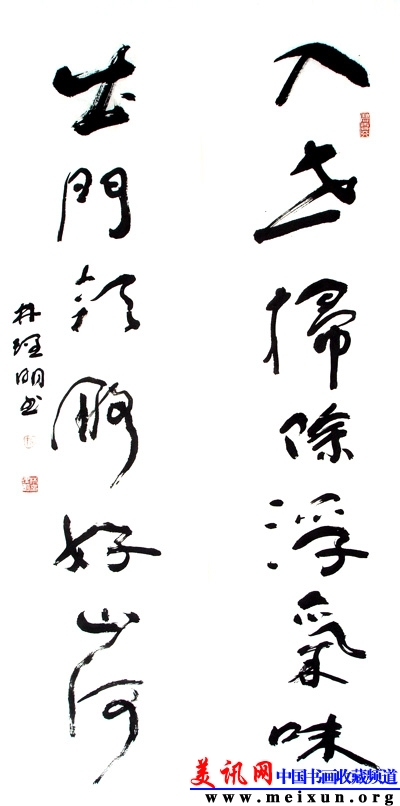 入世掃除浮氣味
出門領略好山河
明书
美讯网中国书画收藏频道
www.meixun.org